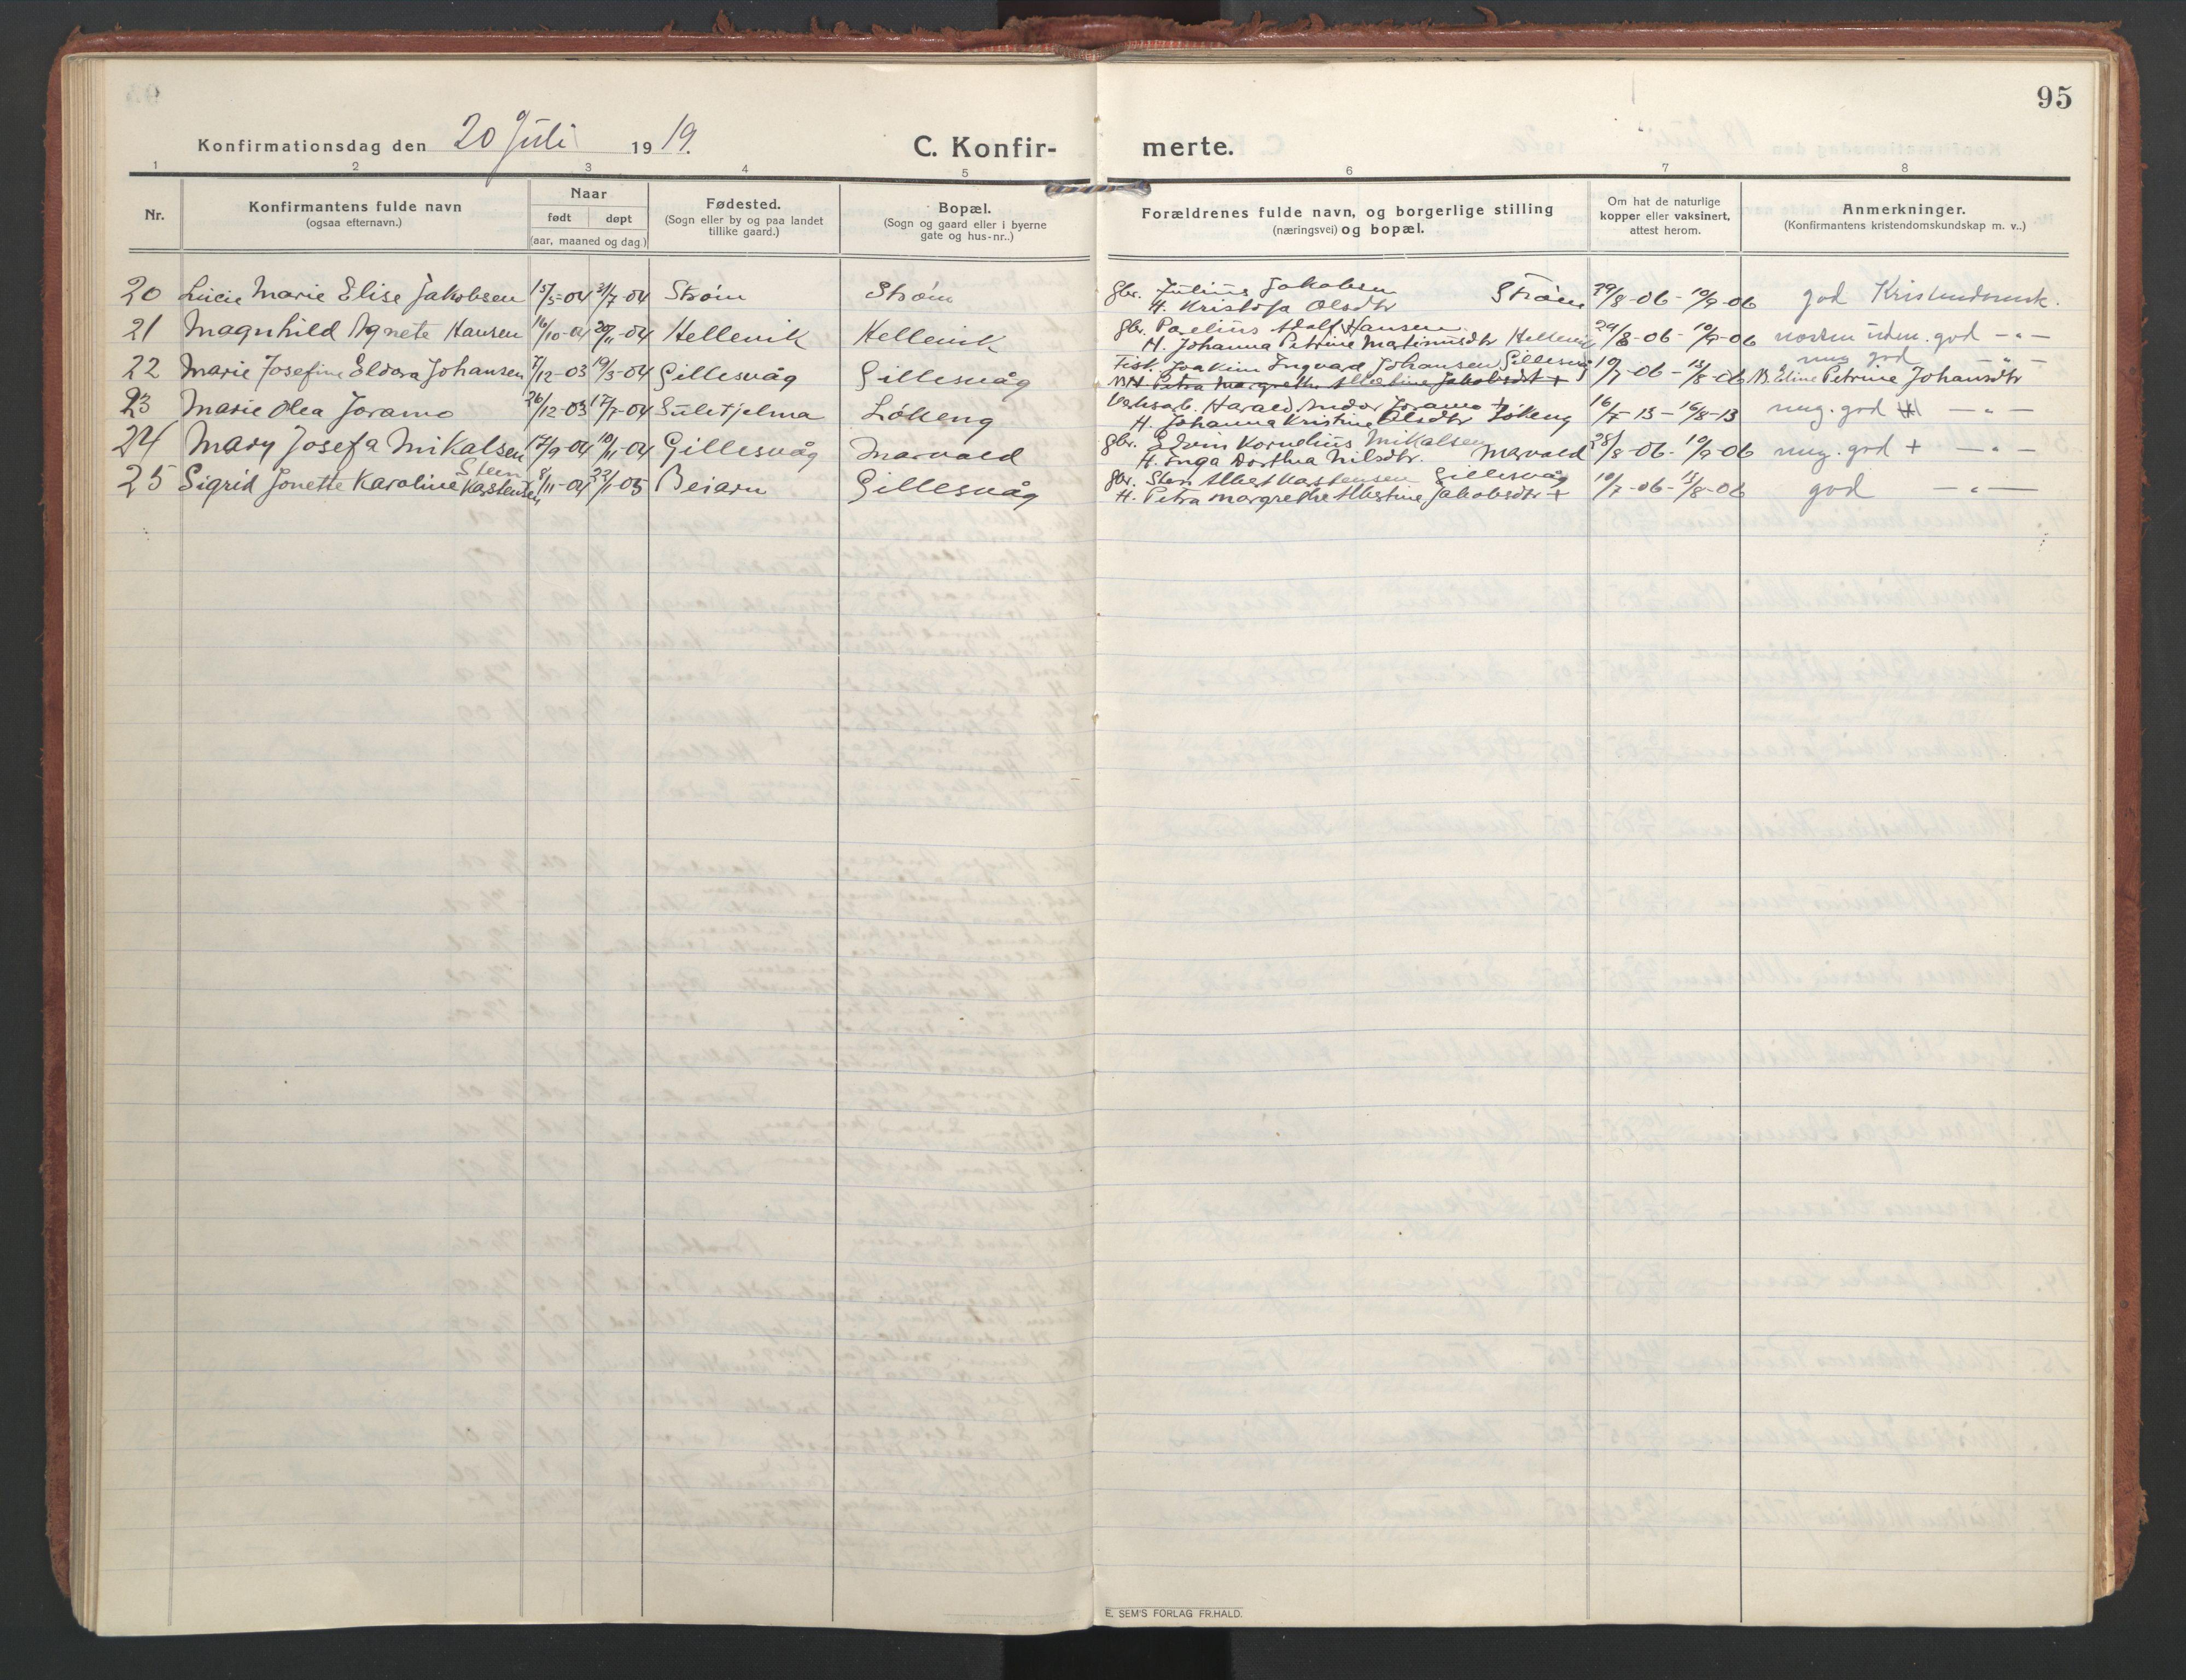 95
Konfirmationsdag den 20 Juli 1919.
C. Konfir- merte.
1 2 3 4 5 6 7 8
Nr.
Konfirmantens fulde navn
(ogsaa efternavn.)
Naar
født døpt
(aar, maaned og dag.)
Fødested.
(Sogn eller by og paa landet
tillike gaard.)
Bopæl.
(Sogn og gaard eller i byerne
gate og hus-nr..)
Forældrenes fulde navn, og borgerlige stilling
(næringsvei) og bopæl.
Om hat de naturlige
kopper eller vaksinert,
attest herom.
Anmerkninger.
(Konfirmantens kristendomskundskap m. v..)
20 Lucie Marie Elise Jakobsen 15/5-04 31/7-04 Strøm Strøm gbr. Julius Jakobsen Strøm 29/8-06 - 10/9-06 god Kristendomsk.
H. Kristofa Olsdtr
21 Magnhild Agnete Hansen 16/10-04 20/11-04 Hellevik Hellevik gbr. Paelius Adolf Hansen 29/8-06 - 10/9-06 god -"-
H. Johanna Petrine Matinusdtr Hellevik
22 Marie Josefine Eldora Johansen 7/12-03 19/3-04 Gillesvåg Gillesvåg Fisk. Joakim Ingvard Johansen Gillesvåg 10/7-06 - 13/8-06 mg god -"-
H. Petra Margrethe Albertine Jakobsdt + Eline Petrine Johansdtr
23 Marie Olea Joramo 26/12-03 17/7-04 Sulitjelma Løkeng Verksarb. Harald Andor Joramo + 16/7-13 - 16/8-13 mg. god -"-
H. Johanna Kristine Olsdtr Løkeng
24 Mary Josefa Mikalsen 17/9-04 10/11-04 Gillesvåg Marvold gbr. Edvin Kornelius Mikalsen 28/8-06 - 10/9-06 mg. god + -"-
H. Inga Dorthea Nilsdtr. Marvold
25 Sigrid Jonette Karoline Steen Karstensen 8/11-04 22/1-05 Beiarn Gillesvåg gbr. Sten Albert Karstensen Gillesvåg 10/7-06 - 13/8-06 god -"-
H. Petra Margrethe Albertine Jakobsdtr +
E. SEM'S FORLAG FR.HALD.